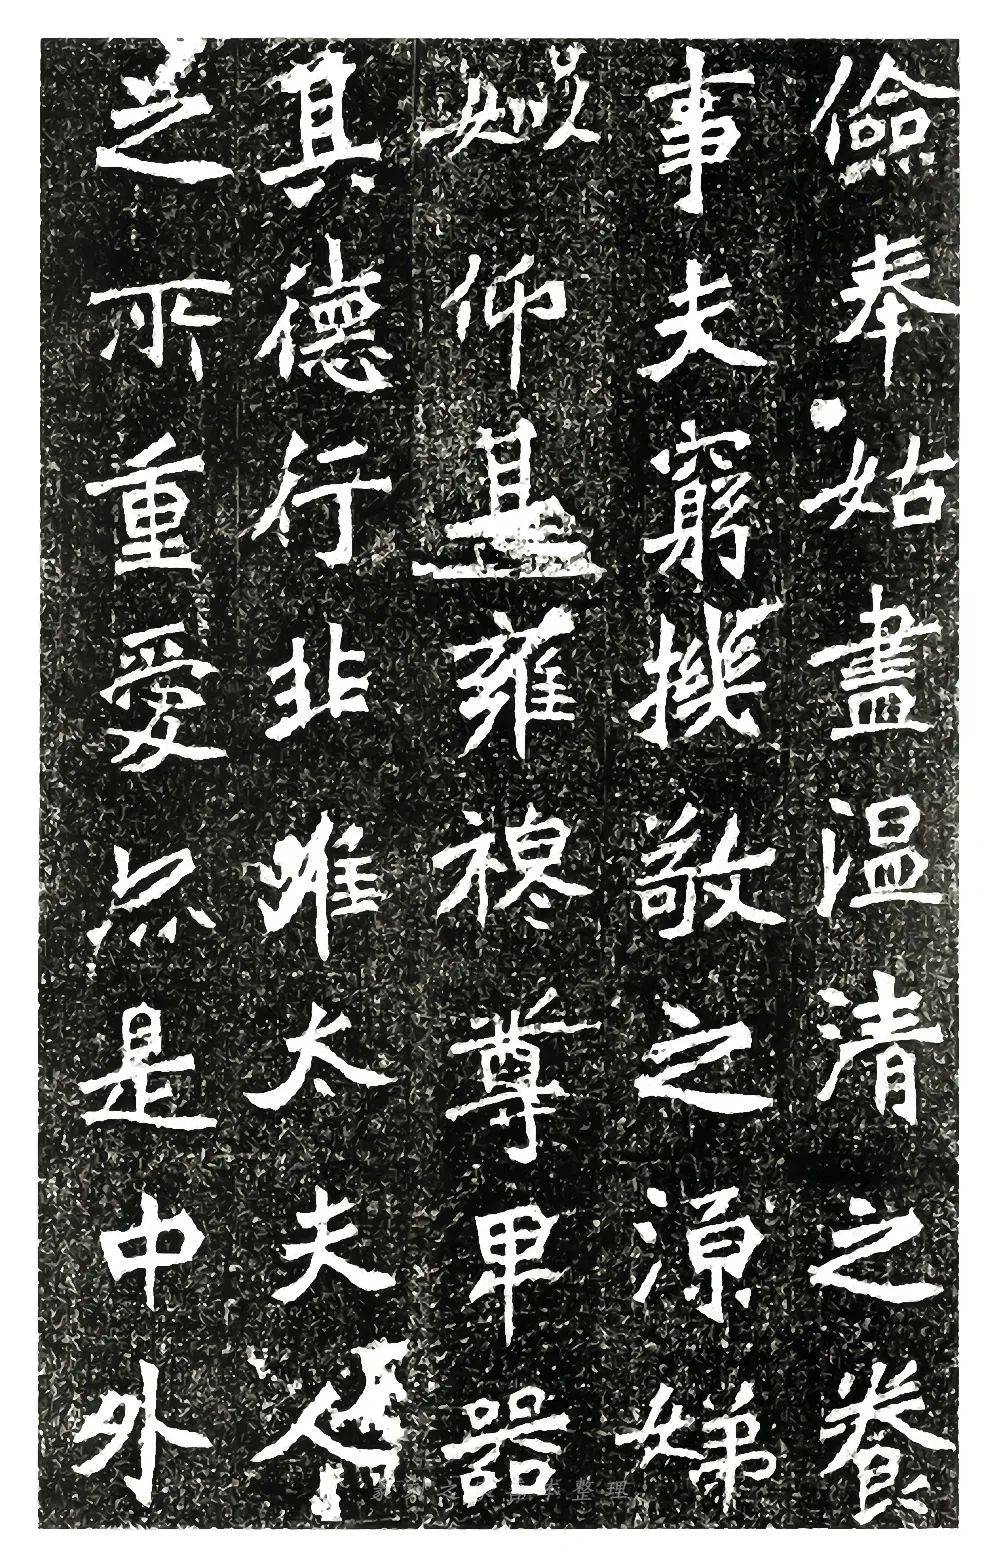 儉奉姑盡温清之養
事夫窮機敬之源娣
姒仰其雍穆尊卑器
其德行非唯太夫人
之所重愛亦是中外
整理